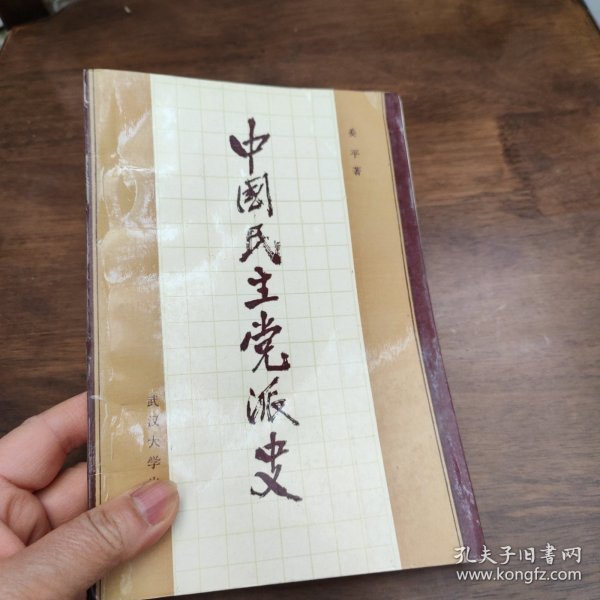 姜平著
中國民主党派史
武汉大学
孔夫子旧书网
www.kongfz.com